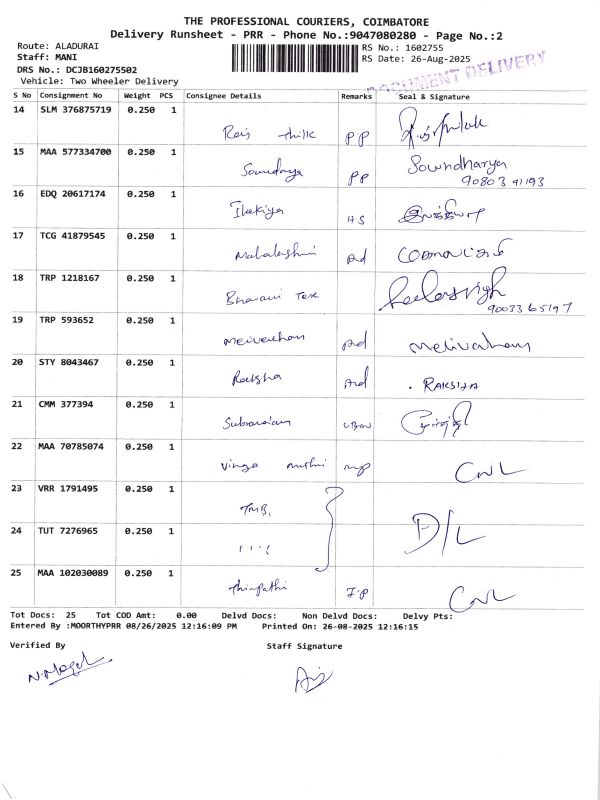 THE PROFESSIONAL COURIERS, COIMBATORE
Delivery Runsheet - PRR - Phone No.:9047080280 - Page No.:2
Route: ALADURAI
Staff: MANI
DRS No.: DCJB160275502
Vehicle: Two Wheeler Delivery
RS No.: 1602755
RS Date: 26-Aug-2025
DOCUMENT DELIVERY
S No Consignment No Weight PCS Consignee Details Remarks Seal & Signature
14 SLM 376875719 0.250 1 Raj PP
15 MAA 577334700 0.250 1 Soundarya PP Soundharya
9080341193
16 EDQ 20617174 0.250 1 Ilakiya HS
17 TCG 41879545 0.250 1 Mahalakshmi Ad
18 TRP 1218167 0.250 1 Bhavani Tex
9003365197
19 TRP 593652 0.250 1 Meivazhan Ad
20 STY 8043467 0.250 1 Raksha Ad RAKSHA
21 CMM 377394 0.250 1 Subramaiam
22 MAA 70785074 0.250 1 muthu mp CNL
23 VRR 1791495 0.250 1 TMB,
24 TUT 7276965 0.250 1 D/L
25 MAA 102030089 0.250 1 Thirupathi F.P CNL
Tot Docs: 25 Tot COD Amt: 0.00 Delvd Docs: Non Delvd Docs: Delvy Pts:
Entered By :MOORTHYPRR 08/26/2025 12:16:09 PM Printed On: 26-08-2025 12:16:15
Verified By Staff Signature